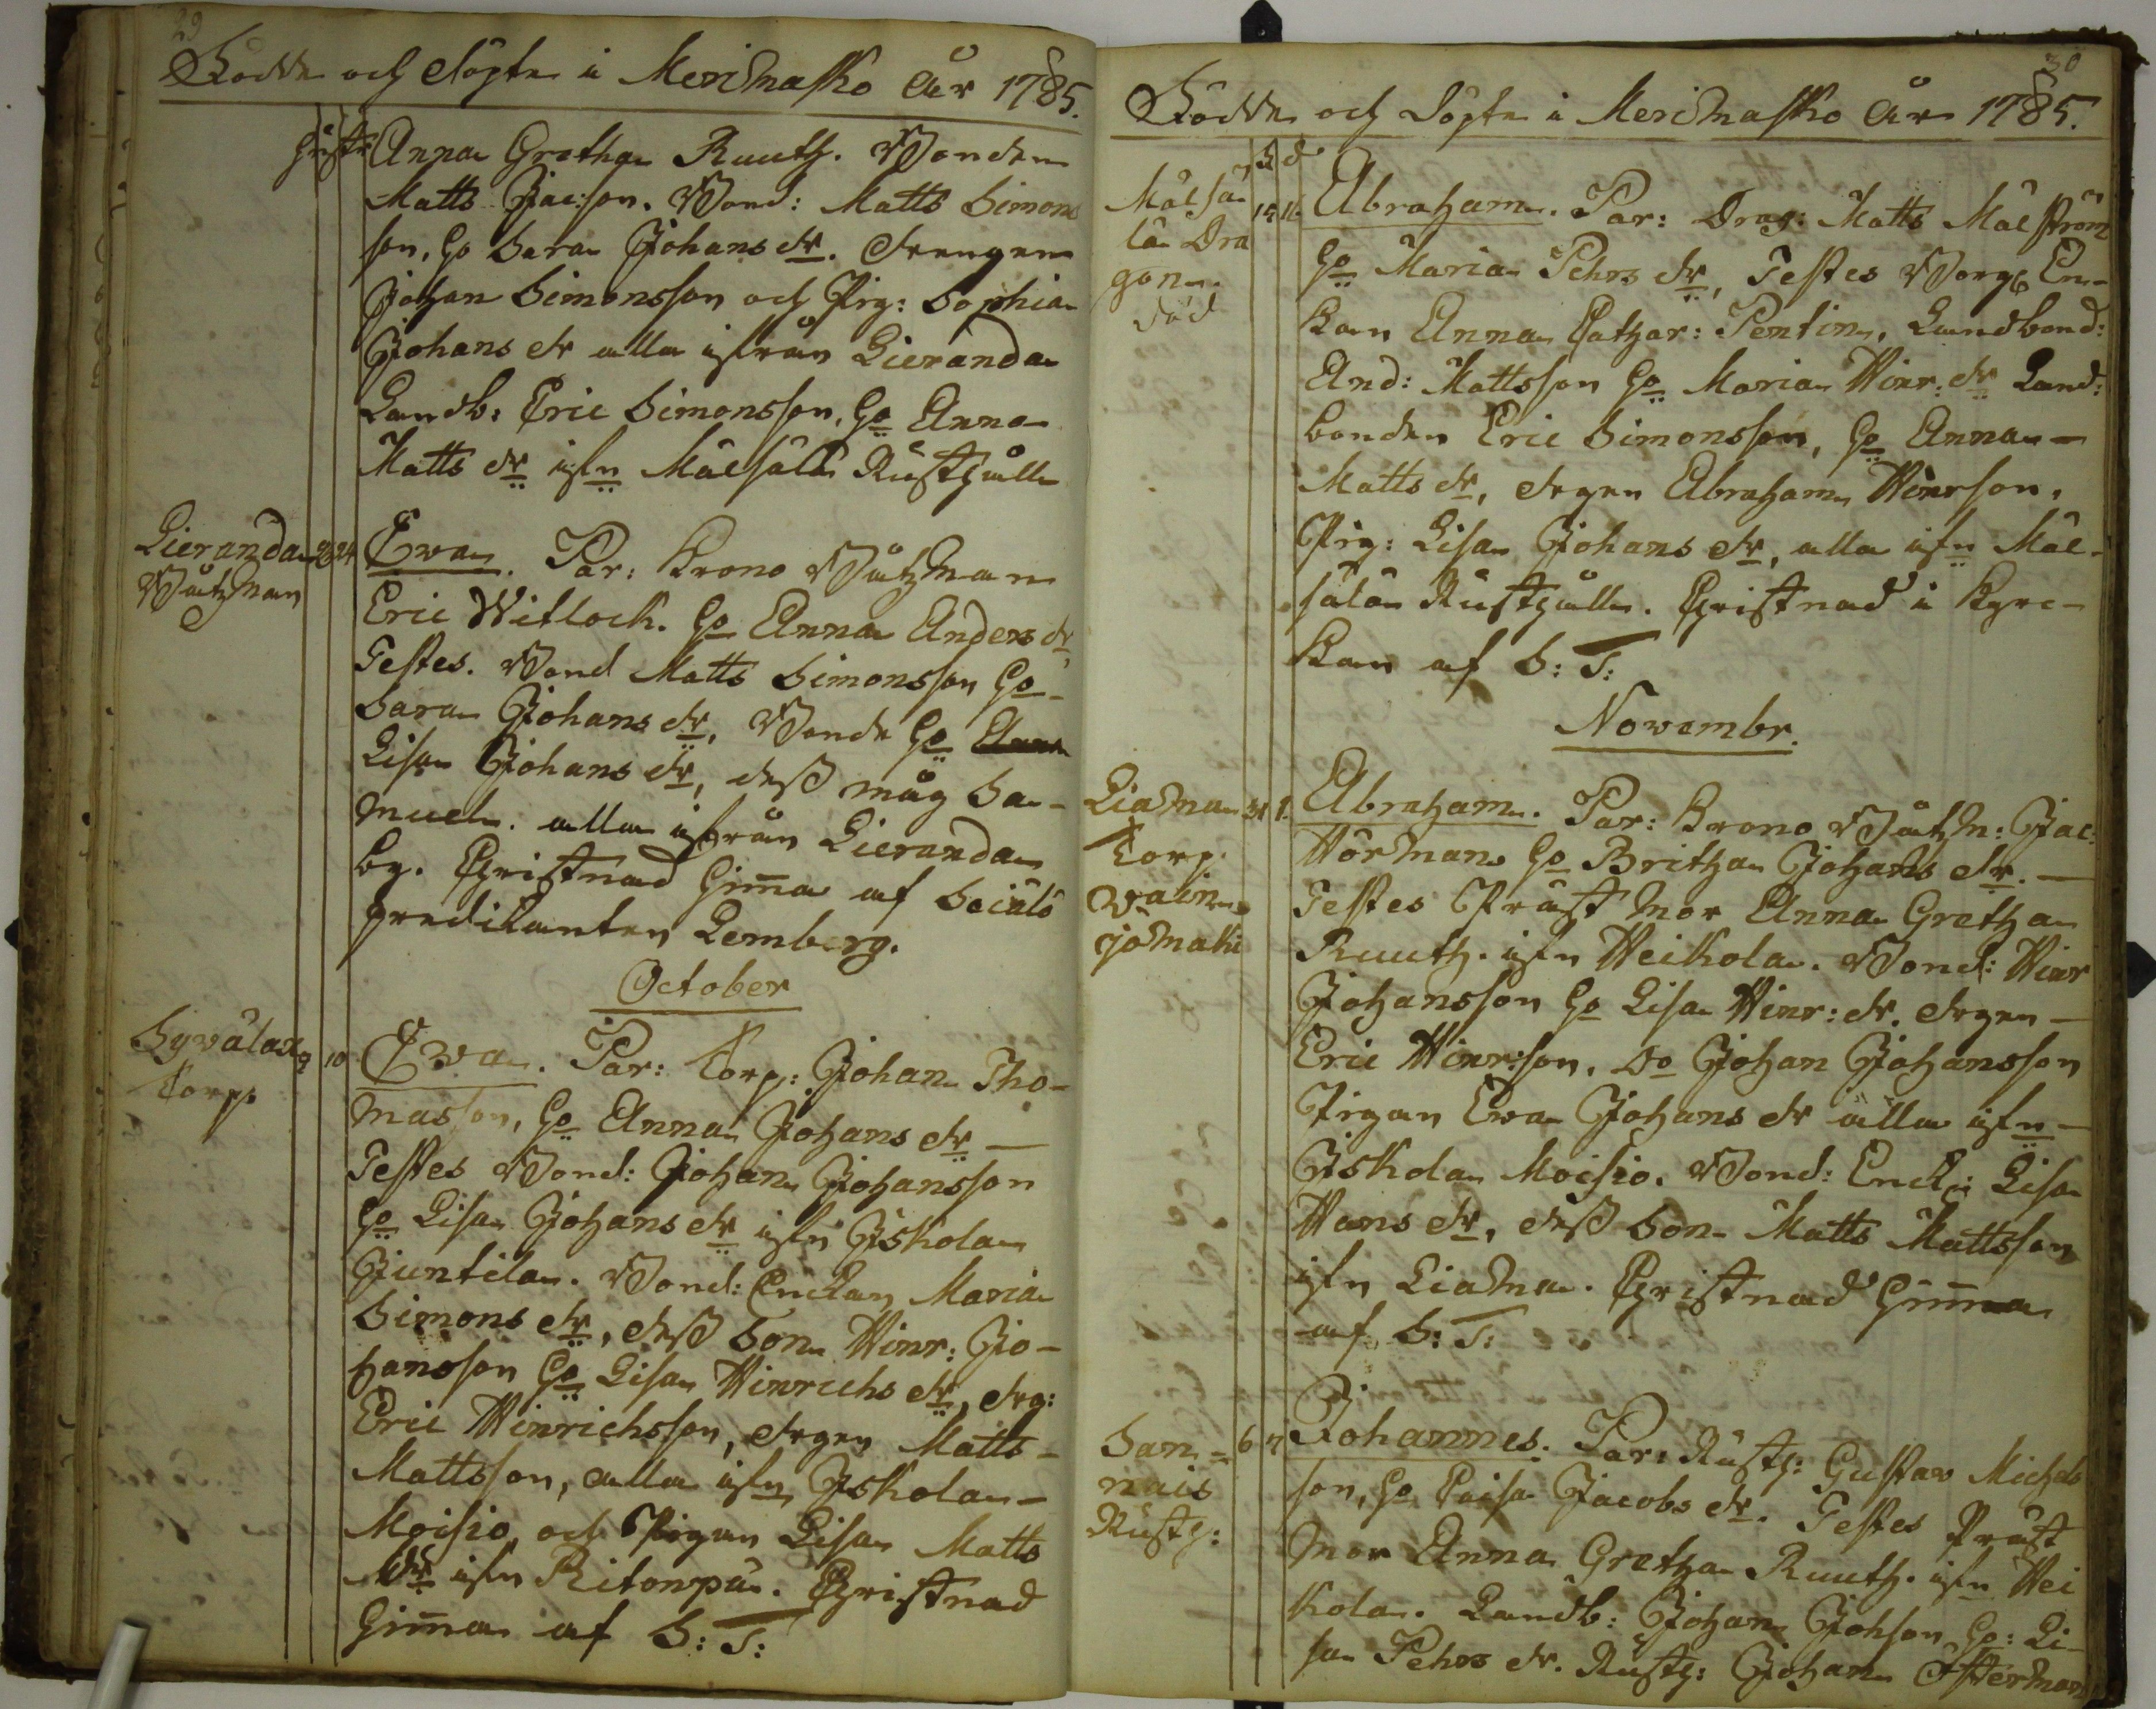 29
Födde och döpte i Merimasko År 1785.
Hustr Anna Gretha Ruuth. Bonden
Matts Jac:son. Bond: Matts Simons
son, Ho Sara Johans dr. Drengen
Johan Simonsson och Pig: Sophia
Johans dr alla ifrån Lieranda
Landb: Eric Simonsson, Ho Anna
Matts dr ifrn Mälsälä Rusthålle
Lieranda
Båtzman
23 24
Ewa. Par: Krono Båtzman
Eric Witlock. Ho Anna Anders dr,
Testes. Bond Matts Simonsson Ho
Sara Johans dr, Bonde Ho
Lisa Johans dr, dess måg Sa-
muel. alla ifrån Lieranda
by. Christnad hemma af
predikanten Lemberg.
October
Torp
9 10
Ewa. Par: Torp: Johan Tho-
masson, Ho Anna Johans dr
Testes Bond: Johan Johansson
Ho Lisa Johans dr ifrn Iskola
Juntila. Bond: Enckan Maria
Simons dr, dess Son Hinr: Jo-
hansson Ho Lisa Hinrichs dr, drg:
Eric Hinrichsson, drgen Matts
Mattsson, alla ifrn Iskola
Moisio, och Pigan Lisa Matts
dr ifrn Ritonpä. Christnad
hemma af S: T:
30
Födde och döpte i Merimasko År 1785.
F d
Mälsä
lä Dra
gon.
död
15 16
Abraham. Par: Drag: Matts Malström
Ho Maria Pehrs dr, Testes Borg: En-
kan Anna Cathar: Pentin, Landbond:
And: Mattsson Ho Maria Hinr: dr Land:
bonden Eric Simonsson, Ho Anna
Matts dr, drgen Abraham Hinrson,
Pig: Lisa Johans dr, alla ifrn Mäl-
sälä Rusthålle. Christnad i Kyrc-
kan af S: T:
Novembr.
Liama
Torp
31 1.
Abraham. Par: Krono Båtzm: Jac:
Hörman Ho Britha Johans dr.
Testes Präst mor Anna Gretha
Ruuth. ifrn Heikola. Bond: Hinr
Johansson Ho Lisa Hinr: dr. drgen
Eric Hinr:son, do Johan Johansson
Pigan Ewa Johans dr alla ifrn
Iskola Moisio. Bond: Enck: Lisa
Hans dr, dess Son Matts Mattsson
ifrn Liama. Christnad hemma
af S: T:
San-
nais
Rusth:
6 7
Johannes. Par: Rusth: Gustav Michels
son, Ho Caisa Jacobs dr. Testes Präst
mor Anna Gretha Ruuth. ifrn Hei
kola. Landb: Johan Johsson Ho: Li-
sa Pehrs dr. Rusth: Johan Österman